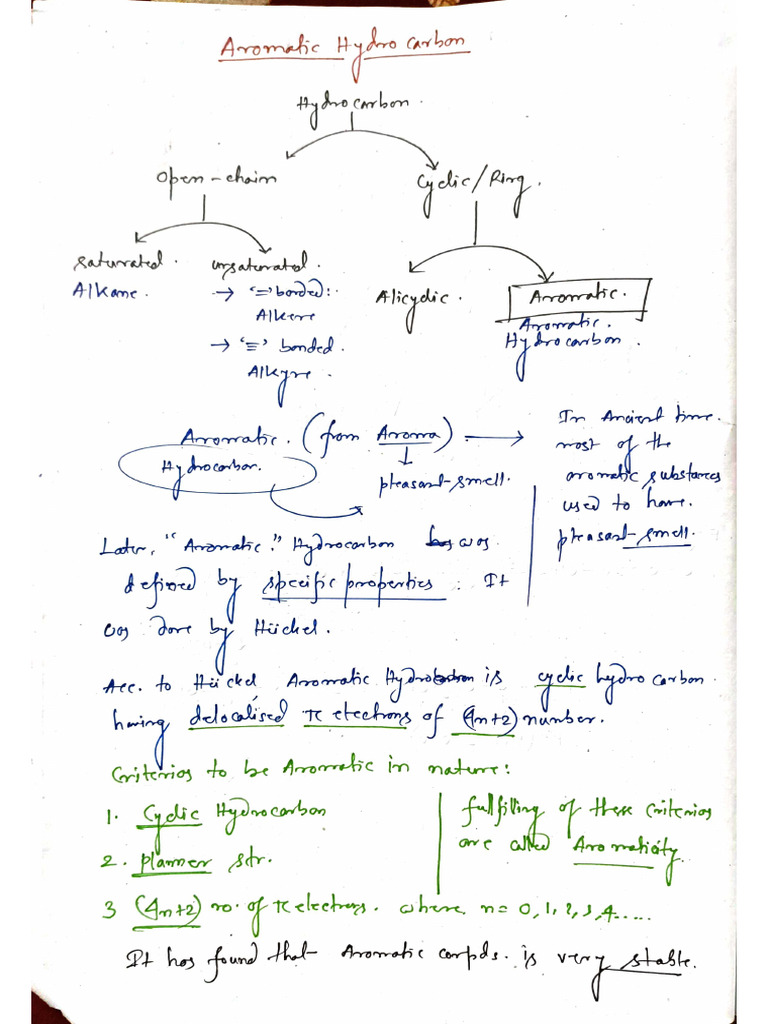 Aromatic Hydrocarbon
Hydrocarbon.
Open-chain
Cyclic/Ring.
saturated.
unsaturated.
Alkane.
→ '=' bonded:
Alkene
→ '≡' bonded.
Alkyne.
Alicyclic.
Aromatic.
Aromatic.
Hydrocarbon.
Aromatic. (from Aroma) →
Hydrocarbon.
pleasant-smell.
In Ancient time.
most of the
aromatic substances
used to have
pleasant-smell.
Later, "Aromatic." Hydrocarbon was
defined by specific properties. It
was done by Hückel.
Acc. to Hückel Aromatic Hydrocarbon is cyclic hydrocarbon
having delocalised π electrons of (4n+2) number.
Criterias to be Aromatic in nature:
1. Cyclic Hydrocarbon
2. planner str.
3 (4n+2) no. of π electrons. where n= 0, 1, 2, 3, 4.....
fulfilling of these criterias
are called Aromaticity
It has found that Aromatic compds. is very stable.